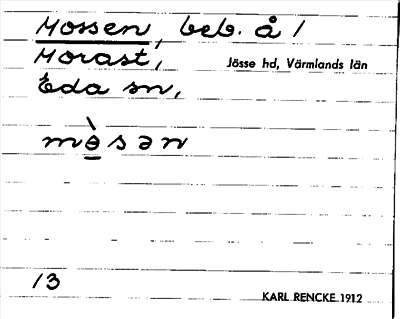 Mossen, beb. å /
Morast,
Jösse hd, Värmlands län
Eda sn,
mə̱̀sən
13
KARL RENCKE 1912